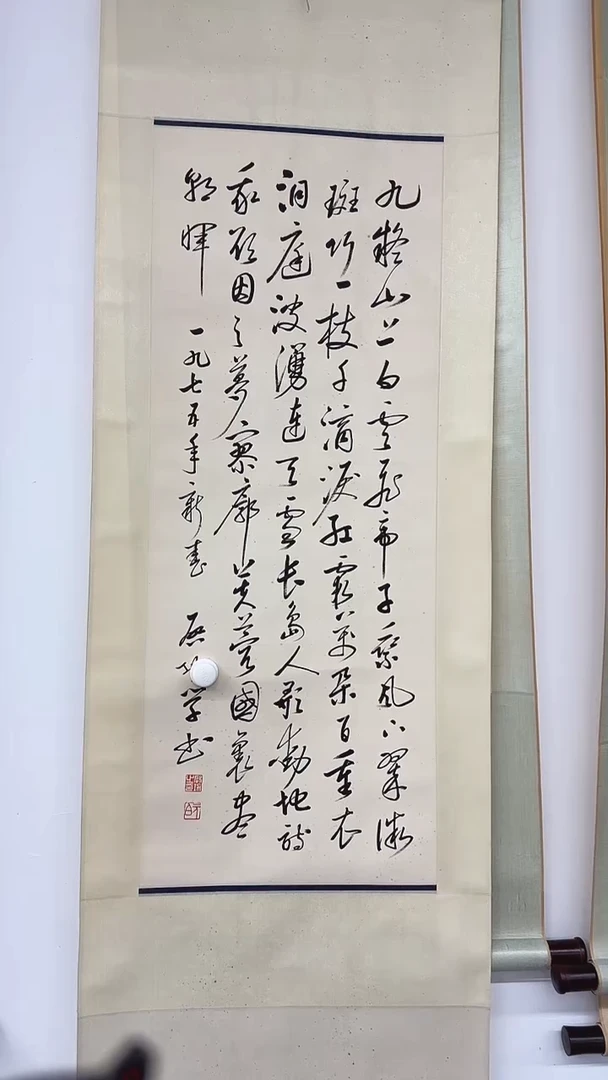 九疑山上白雲飛帝子乘風下翠微
斑竹一枝千滴淚紅霞萬朵百重衣
洞庭波湧連天雪長島人歌動地詩
我欲因之夢寥廓芙蓉國裏盡
朝暉 一九七五年新春 學書